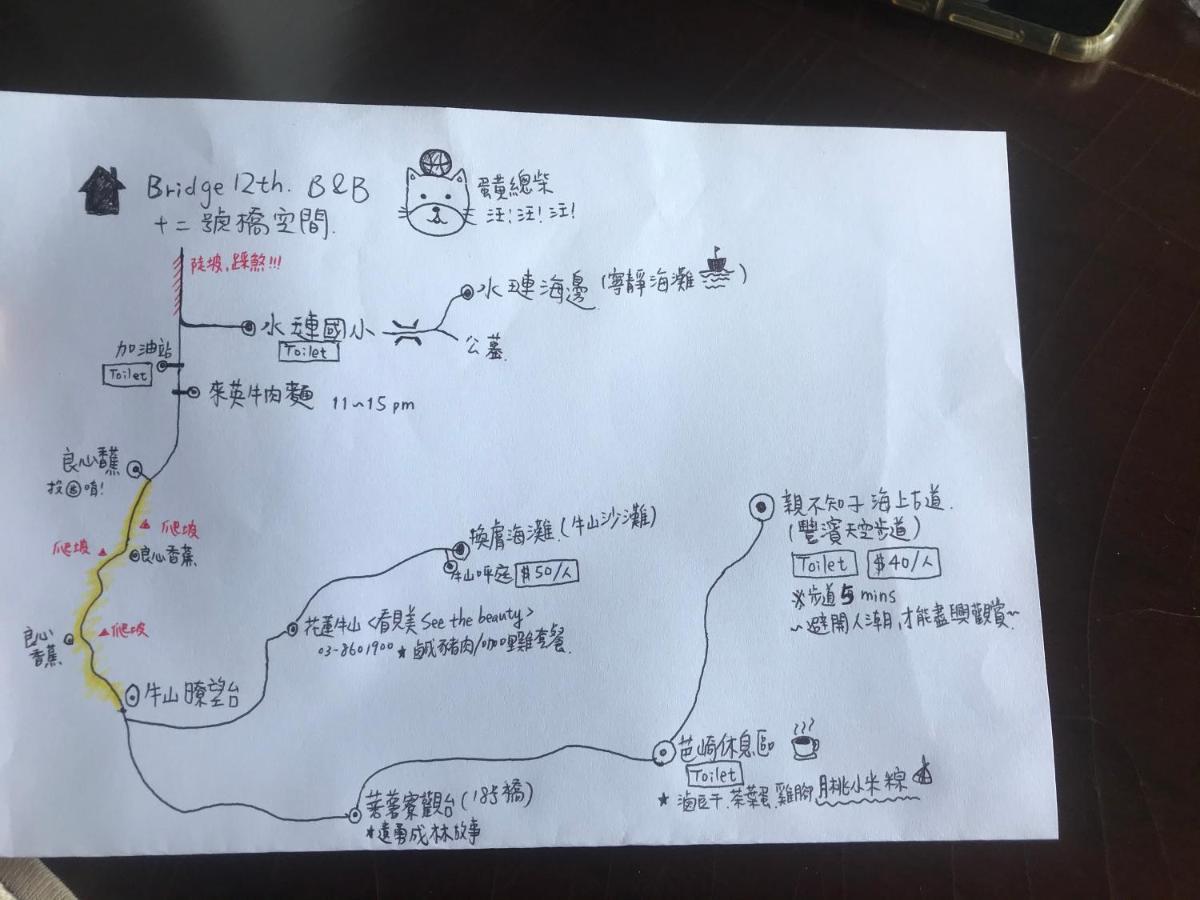 Bridge 12th. B&B
十二號橋空間.
蛋黃總柴
汪!汪!汪!
陡坡,踩煞!!!
水璉海邊(寧靜海灘)
水璉國小
Toilet
公墓.
加油站
Toilet
來英牛肉麵 11~15 pm
良心香蕉
投 唷!
爬坡
爬坡
良心香蕉
爬坡
良心
香蕉
牛山瞭望台
換膚海灘(牛山沙灘)
牛山呼庭 $50/人
花蓮牛山<看見美 See the beauty>
03-8601900 ★鹹豬肉/咖哩雞套餐.
親不知子海上古道.
(豐濱天空步道)
Toilet $40/人
※步道5mins
~避開人潮,才能盡興觀賞~
芭崎休息區
Toilet
★滷豆干.茶葉蛋.雞腳.月桃小米粽
蕃薯寮觀台(185橋)
*遠勇成林故事